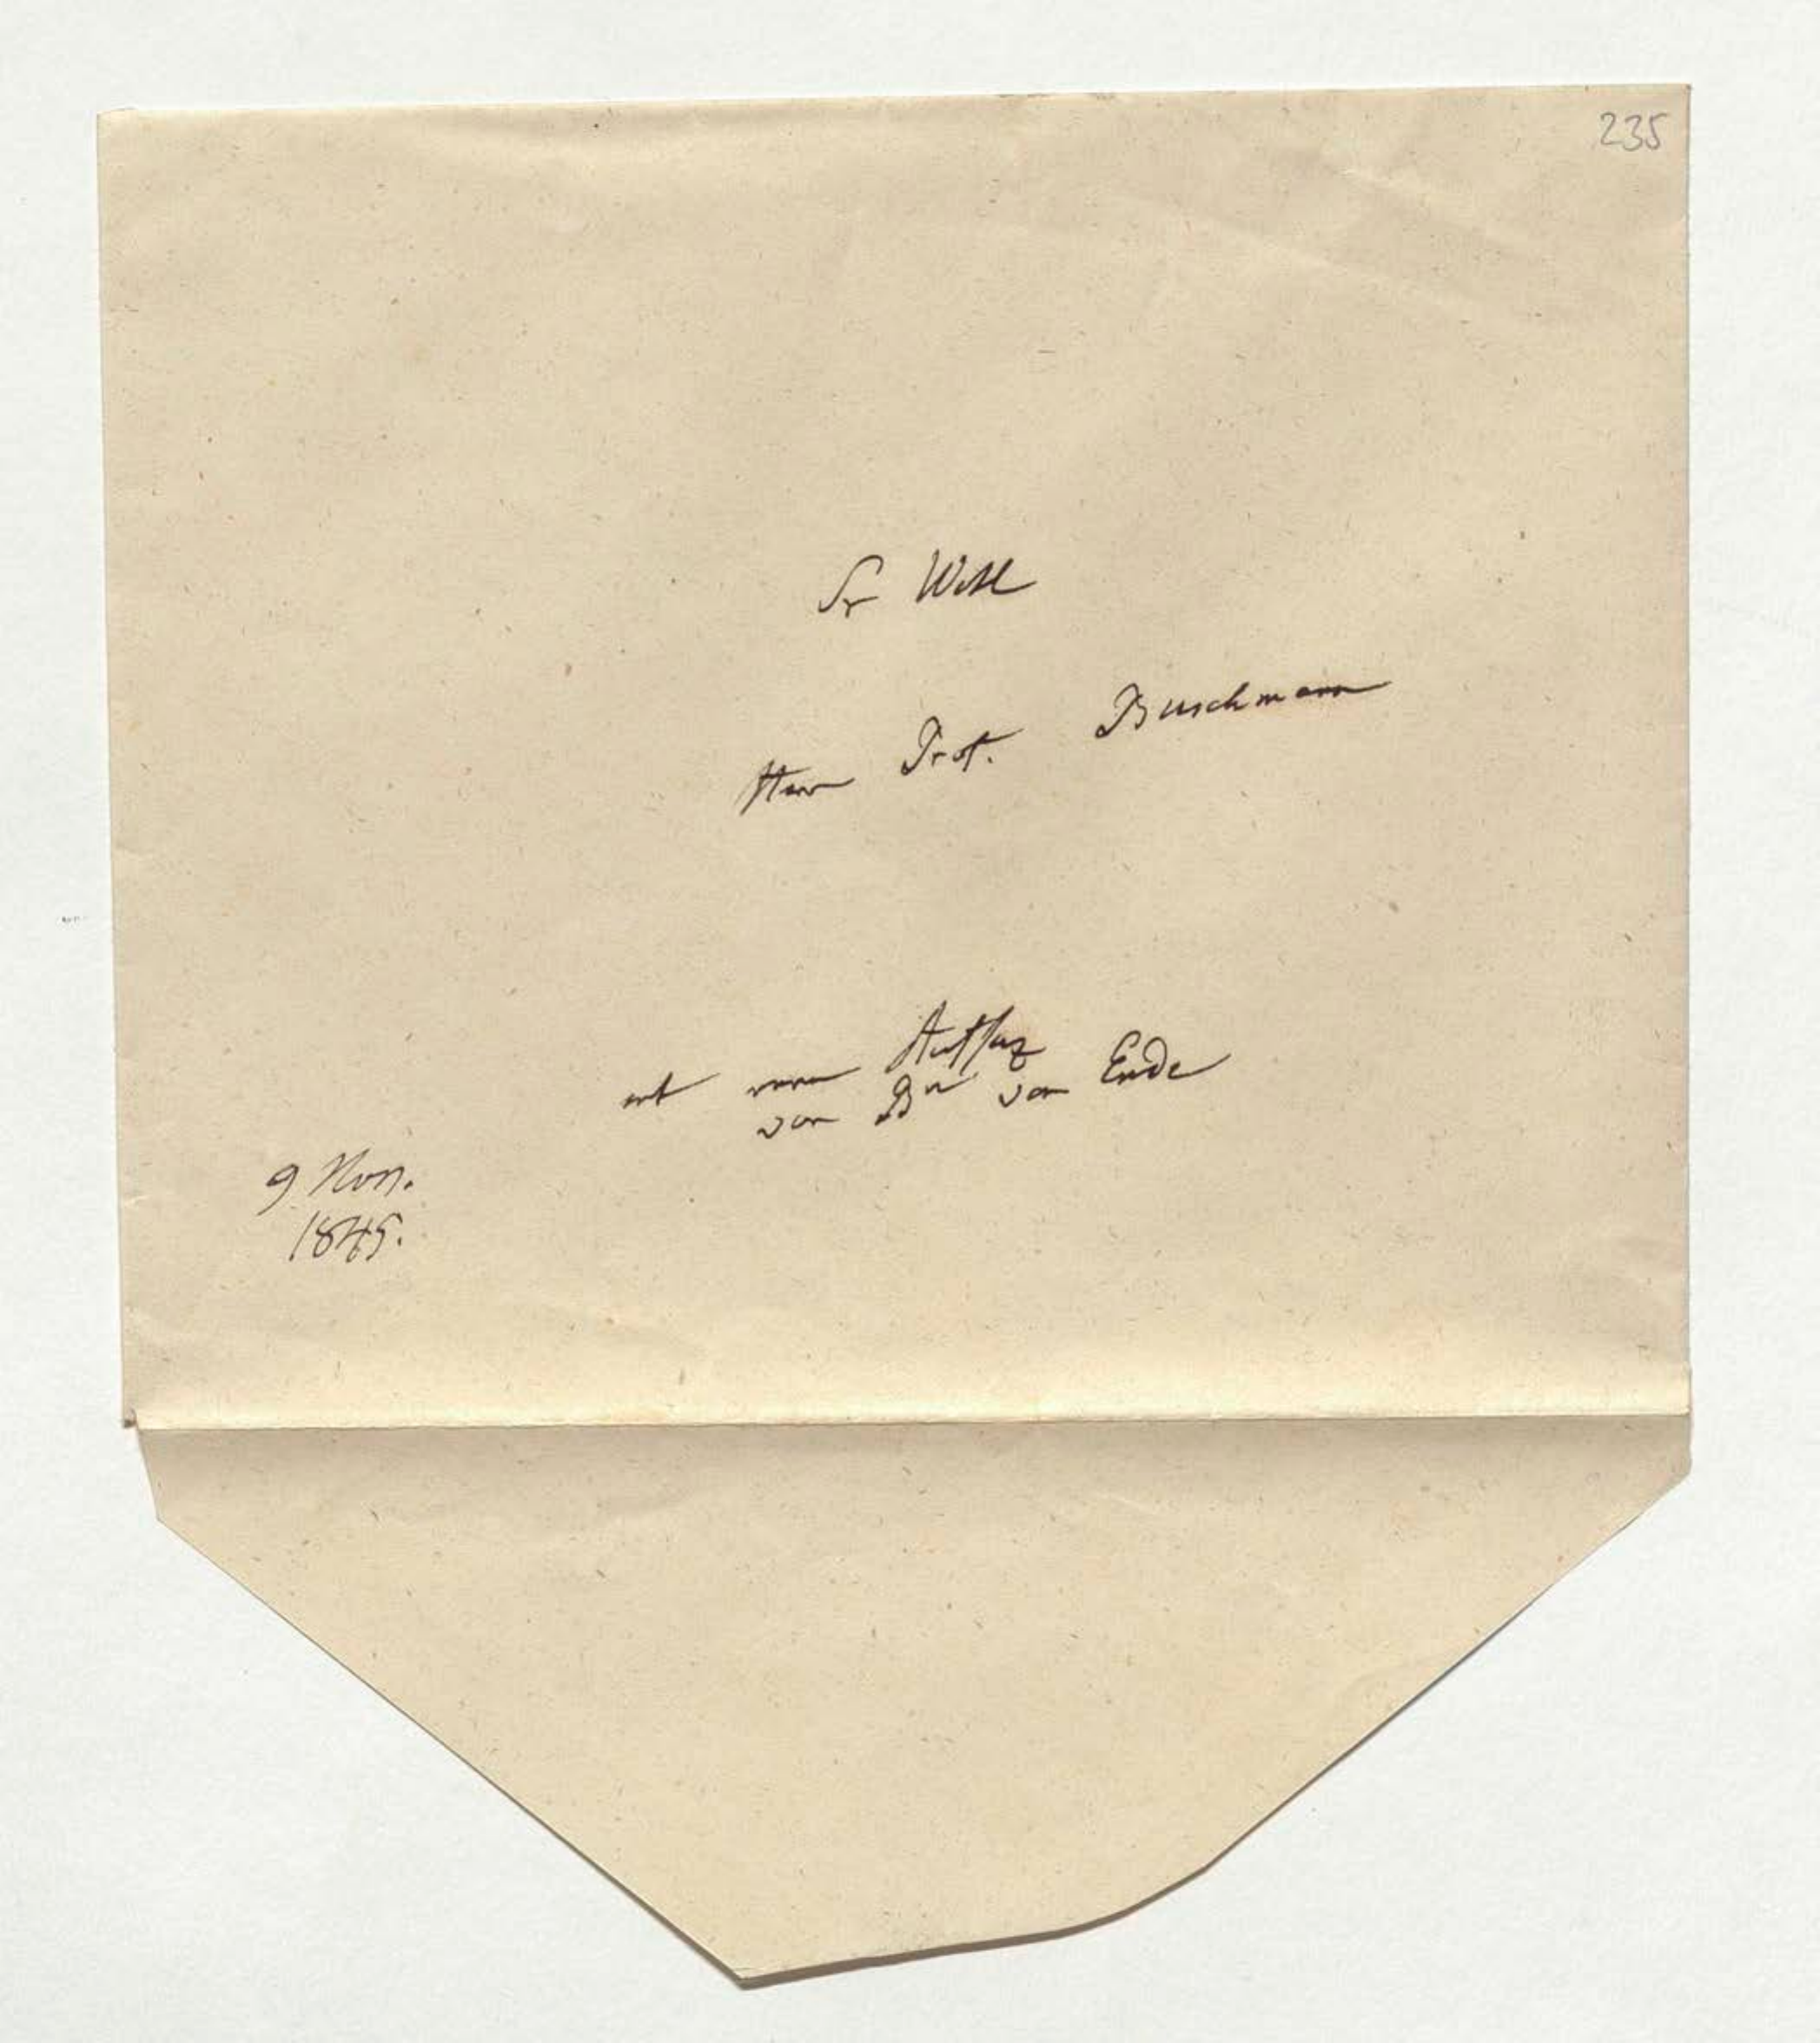 235
Sr Wohl
Herrn Prof. Buschmann
mit Aufsaz
von Bn von Ende
9 Nov.
1845.